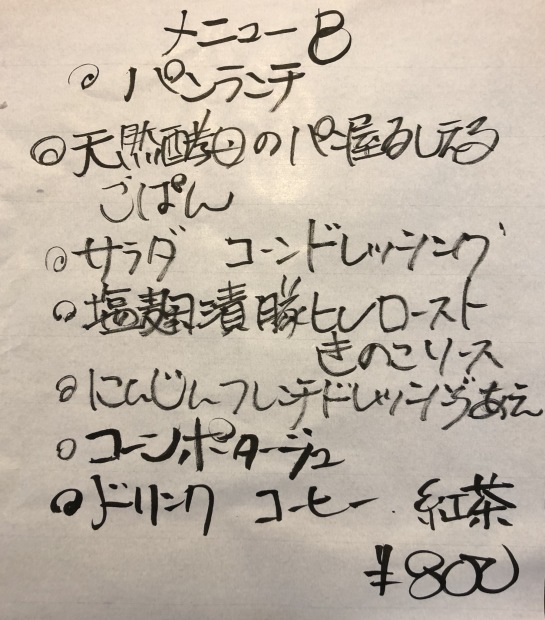 メニューB
◎ パンランチ
◎天然酵母のパン屋るしえる
ごぱん
◎サラダ コーンドレッシング
◎塩麹漬豚ヒレロースト
きのこソース
◎にんじんフレンチドレッシングあえ
◎コーンポタージュ
◎ドリンク コーヒー 紅茶
¥800